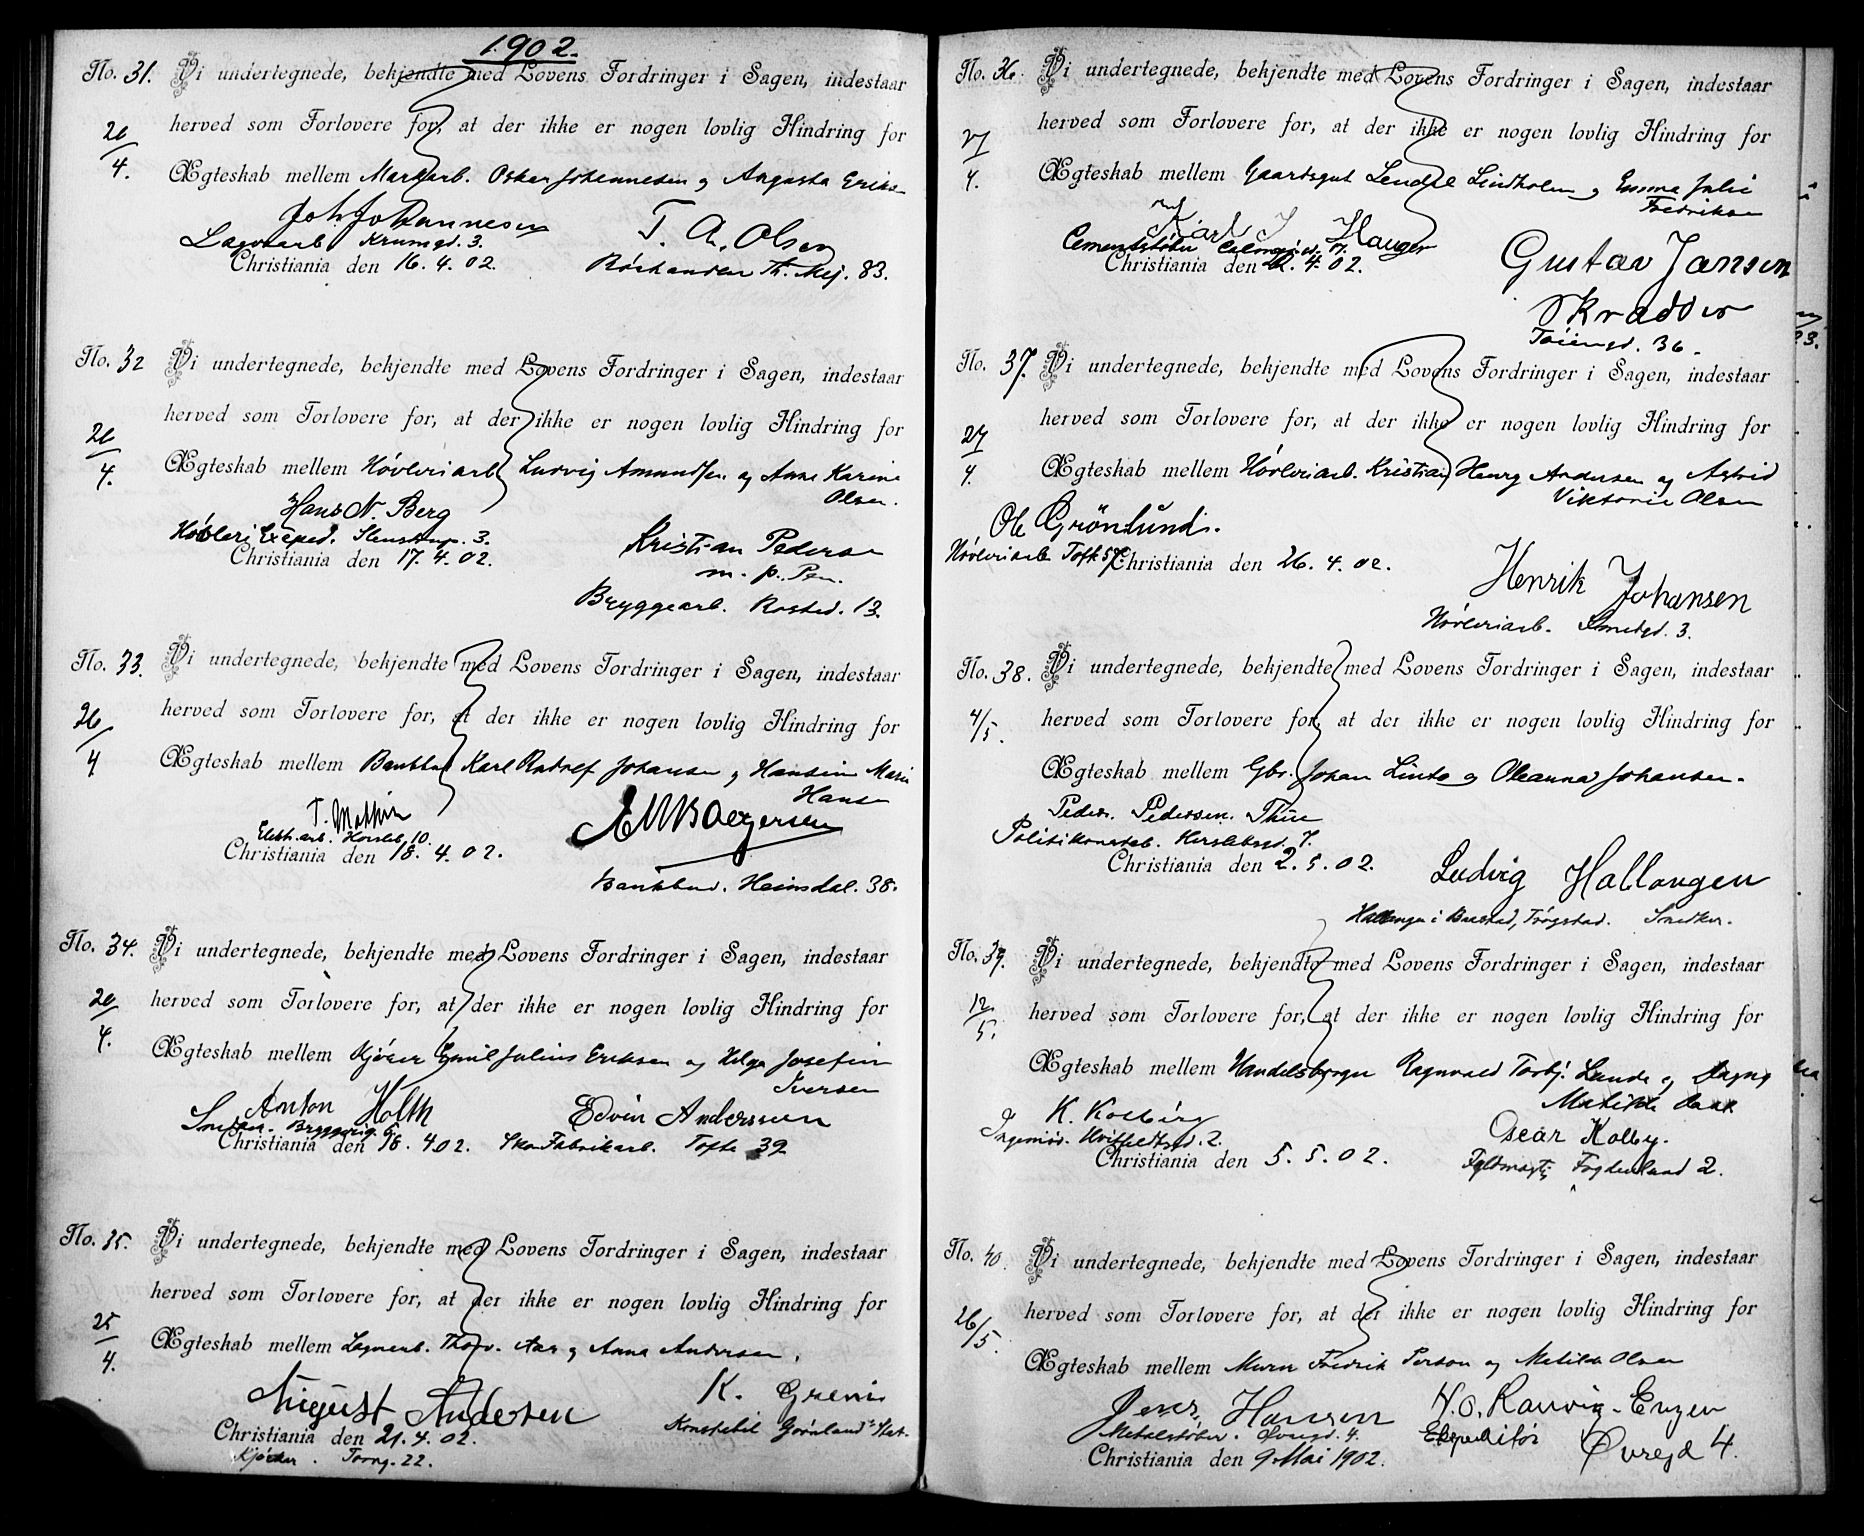 1902.
No. 31. Vi undertegnede, bekjendte med Lovens Fordringer i Sagen, indestaar
herved som Forlovere for, at der ikke er nogen lovlig Hindring for
20/4. Ægteskab mellem Oskar Johannesen og Augusta Eriks
Joh. Johannesen T. A. Olsen
Krumgd. 3.
Christiania den 16. 4. 02. 83.
No. 32 Vi undertegnede, bekjendte med Lovens Fordringer i Sagen, indestaar
herved som Forlovere for, at der ikke er nogen lovlig Hindring for
20/4. Ægteskab mellem Høvleriarb Ludvig Amundsen og Anna Karine
Olsen.
Hans N. Berg
Høvleri Exped. 3. Kristian Pederse
Christiania den 17. 4. 02. m. p. Pen.
Bryggearb. Rosted. 13.
No. 33. Vi undertegnede, bekjendte med Lovens Fordringer i Sagen, indestaar
herved som Forlovere for, at der ikke er nogen lovlig Hindring for
26/4 Ægteskab mellem Bankbud Karl Rudolf Johansen og Hansine Marie
Hansen
10.
Christiania den 18. 4. 02.
Bankbud. Heimdal. 38.
No. 34. Vi undertegnede, bekjendte med Lovens Fordringer i Sagen, indestaar
herved som Forlovere for, at der ikke er nogen lovlig Hindring for
20/4. Ægteskab mellem Kjører Emil Julius Eriksen og Helga Josefine
Iversen
Anton Holth Edvin Anderssen
Christiania den 18. 4 02. Sko Fabrikarb. Tofte 39
No. 35. Vi undertegnede, bekjendte med Lovens Fordringer i Sagen, indestaar
herved som Forlovere for, at der ikke er nogen lovlig Hindring for
25/4. Ægteskab mellem Thorv. Aas og Anna Andersen.
August Andersen K. Grenis
Konstabel Grønland Stat.
Christiania den 21. 4. 02.
Kjører. Torvg. 22.
No. 36. Vi undertegnede, bekjendte med Lovens Fordringer i Sagen, indestaar
herved som Forlovere for, at der ikke er nogen lovlig Hindring for
27/4. Ægteskab mellem Gaardsgut Lindholm og Emma Julie
Fredriksen
Karl J Hauger
Cementstøber 17. Gustav Jansen
Christiania den 22. 4. 02.
Skrædder
Tøiengd. 36.
No. 37. Vi undertegnede, bekjendte med Lovens Fordringer i Sagen, indestaar
herved som Forlovere for, at der ikke er nogen lovlig Hindring for
27/4. Ægteskab mellem Høvleriarb. Kristian Henry Andersen og Astrid
Viktoria Olsen
Ole Grönlund.
Høvleriarb Tofte 57 Christiania den 26. 4. 02.
Henrik Johansen
Høvleriarb. Smedgd. 3.
No. 38. Vi undertegnede, bekjendte med Lovens Fordringer i Sagen, indestaar
4/5. herved som Forlovere for, at der ikke er nogen lovlig Hindring for
Ægteskab mellem Gbr. Johan Linde og Oleanna Johansen.
Peder. Pederssen. Thue
Politikonstab. Herslebsgd. 7.
Christiania den 2. 5. 02. Ludvig Hallangen
Hallangen i Baastad, Trøgstad.
No. 39. Vi undertegnede, bekjendte med Lovens Fordringer i Sagen, indestaar
12/5. herved som Forlovere for, at der ikke er nogen lovlig Hindring for
Ægteskab mellem Handelsborger Ragnvald Torbj. Lunde og Dagny
Matilde
K. Kolberg Oscar Kolby.
Ingeniør. Hvitfeldtsgd. 2.
Christiania den 5. 5. 02. 2.
No. 40. Vi undertegnede, bekjendte med Lovens Fordringer i Sagen, indestaar
herved som Forlovere for, at der ikke er nogen lovlig Hindring for
26/5. Ægteskab mellem Murer Fredrik Person og Matilde Olsen
Jens Hansen H. O. Ranvig-Engen
Metalstøber. 4. Expeditør Øvregd 4.
Christiania den 9. Mai 1902.